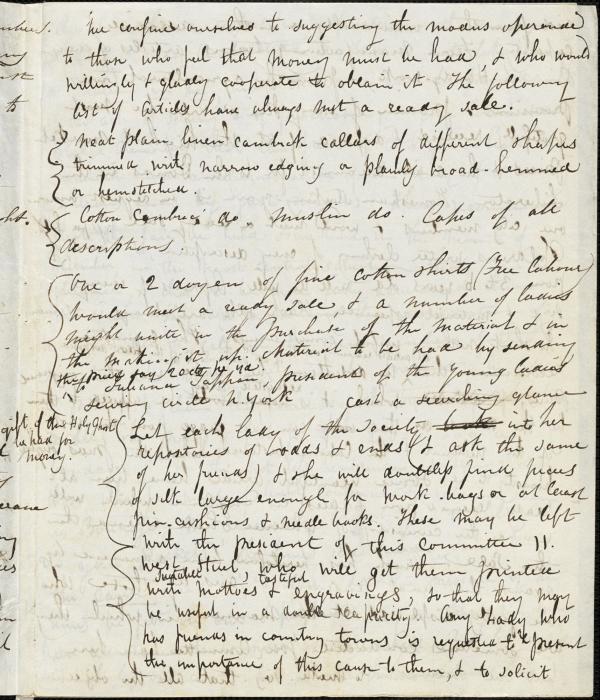 We confine ourselves to suggesting the modus operende
to those who feel that money must be had, & who would
willingly & gladly cooperate to obtain it The following
list of articles have always met a ready sale.
neat plain linen cambrick collars of different shapes
trimmed with narrow edging or plainly broad-hemmed
or hemstitched.
Cotton Cambric do - muslin do. Capes of all
descriptions.
One or 2 dozen of fine cotton shirts (Free labour)
would meet a ready sale, & a number of ladies
might unite in the purchase of the material & in
the making it up. Material to be had by sending
the price say 20 cts pr yd.
to Juliana Tappan president of the Young Ladies
sewing circle N. York cast a searching glance
Let each lady of the society into her
repositories of odds & ends (& ask the same
of her friends) & she will doubtless find pieces
of silk large enough for work-bags or at least
pin-cushions & needle books. These may be left
with the president of this committee 11.
West Street, who will get them printed
suitable tasteful
with mottoes & engravings, so that they may
be useful in a double capacity Any Lady who
has friends in country towns is requested to present
the importance of this cause to them, & to solicit
gift of the Holy Ghost
be had for
money.